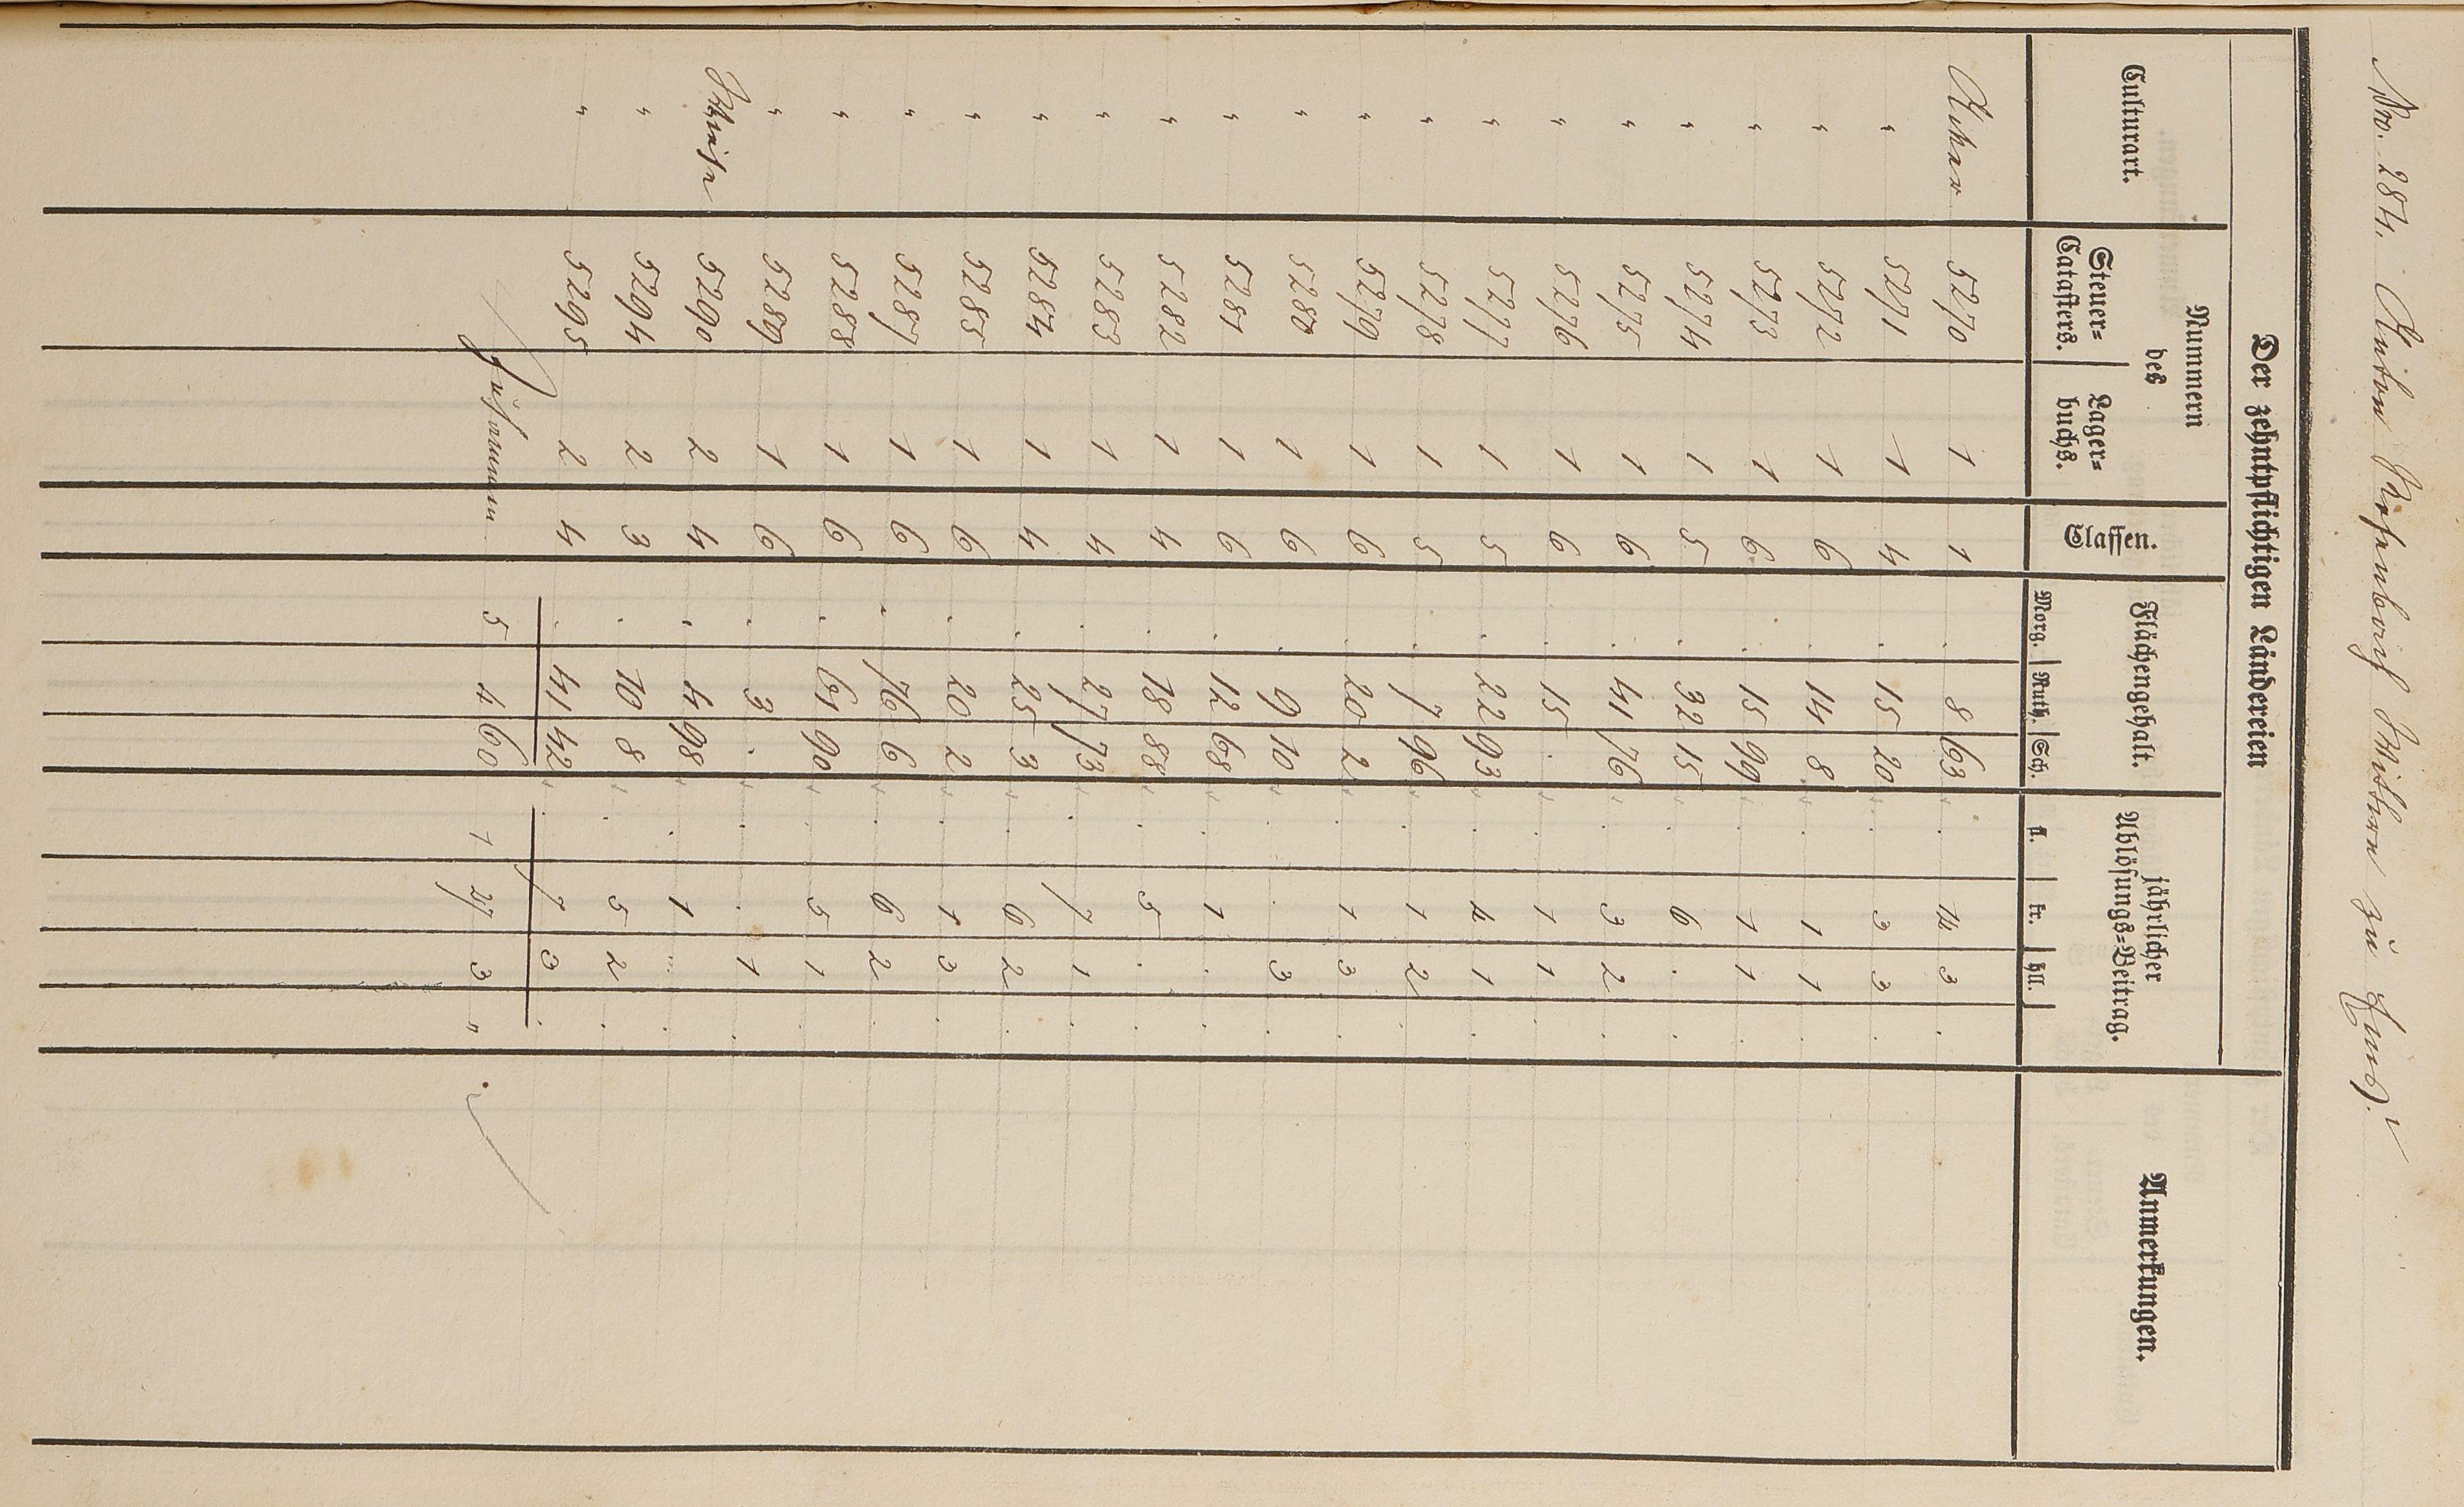 Nro. 284. Anton Rosenbach Wittwe zu
Der zehntpflichtigen Ländereien
Culturart.
Nummern
des
Steuer=
Catasters.
Lager=
buchs.
Classen.
Flächengehalt.
Morg. Ruth. Sch.
jährlicher
Ablösungs=Beitrag.
fl. kr. hll.
Anmerkungen.
Acker 5270 1 1 . 8 63 . 14 3 .
" 5271 1 4 . 15 20 . 3 3 .
" 5272 1 6 . 14 8 . 1 1 .
" 5273 1 6 . 15 99 . 1 1 .
" 5274 1 5 . 32 15 . 6 . .
" 5275 1 6 . 41 76 . 3 2 .
" 5276 1 6 . 15 . . 1 1 .
" 5277 1 5 . 22 93 . 4 1 .
" 5278 1 5 . 7 96 . 1 2 .
" 5279 1 6 . 20 2 . 1 3 .
" 5280 1 6 . 9 10 . . 3 .
" 5281 1 6 . 12 68 . 1 . .
" 5282 1 4 . 18 88 . 5 . .
" 5283 1 4 . 27 73 . 7 1 .
" 5284 1 4 . 25 3 . 6 2 .
" 5285 1 6 . 20 2 . 1 3 .
" 5287 1 6 . 76 6 . 6 2 .
" 5288 1 6 . 61 90 . 5 1 .
" 5289 1 6 . 3 . . . 1 .
Wiese 5290 2 4 . 4 98 . 1 . .
" 5294 2 3 . 10 8 . 5 2 .
" 5295 2 4 . 41 42 . 7 3 .
Zusammen 5 4 60 1 27 3 "